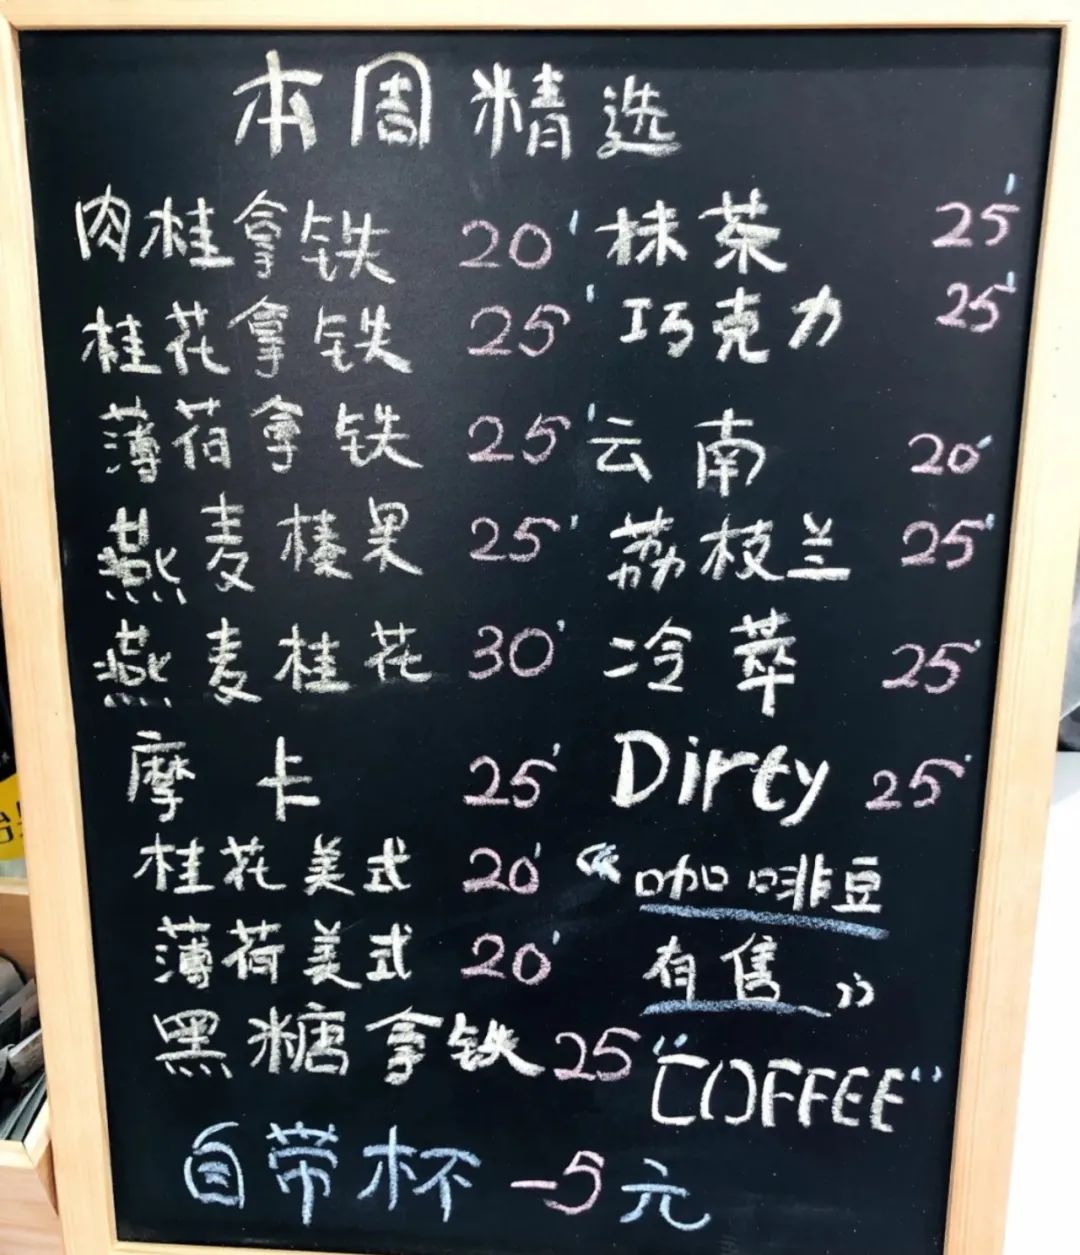 本周精选
肉桂拿铁 20
桂花拿铁 25
薄荷拿铁 25
燕麦榛果 25
燕麦桂花 30
摩卡 25
桂花美式 20
薄荷美式 20
黑糖拿铁 25
抹茶 25
巧克力 25
云南 20
荔枝兰 25
冷萃 25
Dirty 25
“咖啡豆
有售”
“COFFEE”
自带杯 -5元